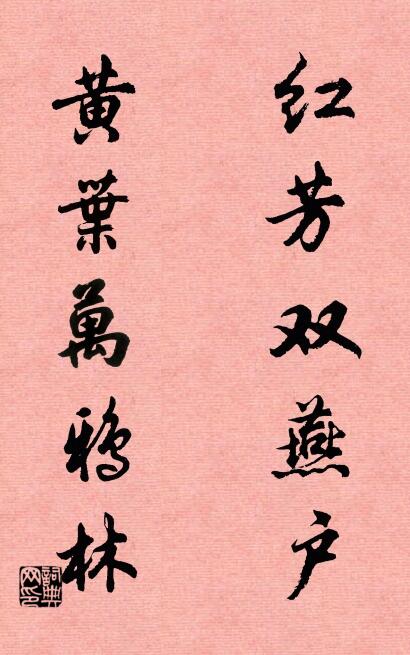 红芳双燕户
黄葉萬鸦林
詞典网印